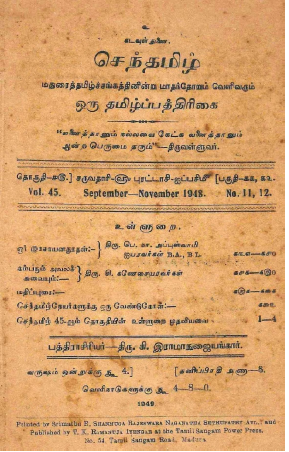 உ
கடவுள் துணை.
செந்தமிழ்
மதுரைத்தமிழ்ச்சங்கத்தினின்று மாதந்தோறும் வெளிவரும்
ஒரு தமிழ்ப்பத்திரிகை
"எனைத்தானும் நல்லவை கேட்க வனைத்தானும்
ஆன்ற பெருமை தரும்"—திருவள்ளுவர்.
தொகுதி-௪௫.] சருவதாரி-௵ புரட்டாசி-ஐப்பசி௴ [பகுதி-௧௧, ௧௨.
Vol. 45. September—November 1948. No. 11, 12.
உள்ளுறை.
திரு. பெ. கா. அப்புஸ்வாமி
ஐயரவர்கள் B.A., B.L.
கம்பரும்
திரு. சி. கணேசையரவர்கள்
மதிப்புரை:—
செந்தமிழ்நேயர்களுக்கு ஒரு வேண்டுகோள்:—
செந்தமிழ் 45-ஆம் தொகுதியின் உள்ளுறை முதலியவை 1—4
பத்திராசிரியர்—திரு. கி. இராமாநுஜையங்கார்.
வருஷம் ஒன்றுக்கு ரூ 4.] [தனிப்பிரதி அணா-8.
வெளிநாடுகளுக்கு ரூ 4—8—0.
1949
Printed by Srimathu R. Shanmuga Rajeswara Naganatha Sethupathy Avl.
Published by T. K. Ramanuja Iyengar at the Tamil Sangam Power Press.
No. 54 Tamil Sangam Road, Madura